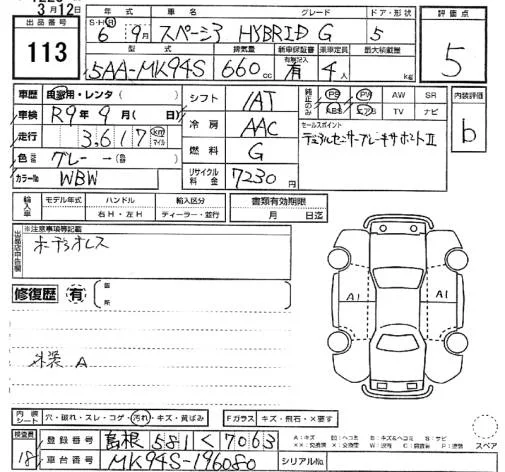 3月12日
出品番号 年式 車名 グレード ドア・形状 評価点
113 S・H・R 6年 9月 スペーシア HYBRID G 5 5
型式 排気量 新車保証書 乗車定員 最大積載量
5AA-MK94S 660cc 有 4人 kg
車歴 自家用・レンタ( ) シフト IAT 純正のみ PS PW AW SR 内装評価
車検 R9年 9月 (日) 冷房 AAC ABS エアB TV ナビ b
走行 3,617 km マイル 燃料 G セールスポイント
デュアルセンサーブレーキサポートⅡ
色 グレー → リサイクル料金 7230円
カラーNo WBW
輸入車 モデル年式 ハンドル 輸入区分 書類有効期限
右H・左H ディーラー・並行 月 日迄
出品店申告欄 ※注意事項等記載
ボデラオレス
修復歴 有 箇所
A1 A1
外装 A
内装シート 穴・破れ・スレ・コゲ・汚れ・キズ・黄ばみ Fガラス キズ・飛石・×要す
検査員 18 登録番号 島根 581 く 7063
車台番号 MK94S-196080 シリアルNo.
スペア